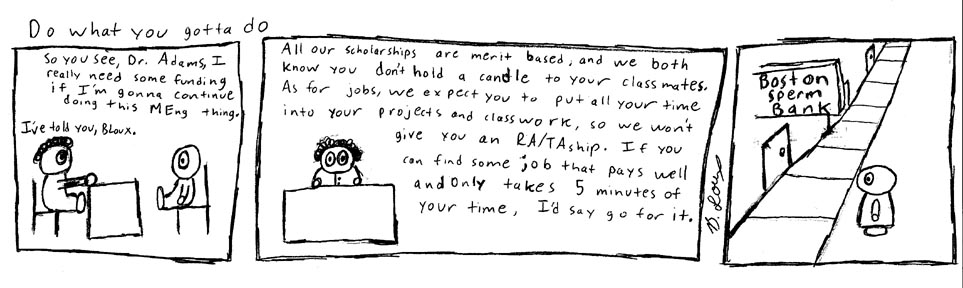 Do what you gotta do
So you see, Dr. Adams, I
really need some funding
if I'm gonna continue
doing this MEng thing.
I've told you, Bloux.
All our scholarships are merit based, and we both
know you don't hold a candle to your classmates.
As for jobs, we expect you to put all your time
into your projects and classwork, so we won't
give you an RA/TAship. If you
can find some job that pays well
and only takes 5 minutes of
your time, I'd say go for it.
Boston
Sperm
Bank